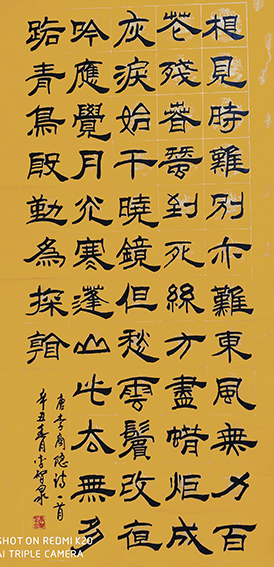 相見時難別亦難東風無力百
花殘春蠶到死絲方盡蜡炬成
灰淚始干曉鏡但愁雲鬢改夜
吟應覺月光寒蓬山此去無多
路青鳥殷勤為探看
唐李商隱詩一首
辛丑春月李智泉
SHOT ON REDMI K20
AI TRIPLE CAMERA